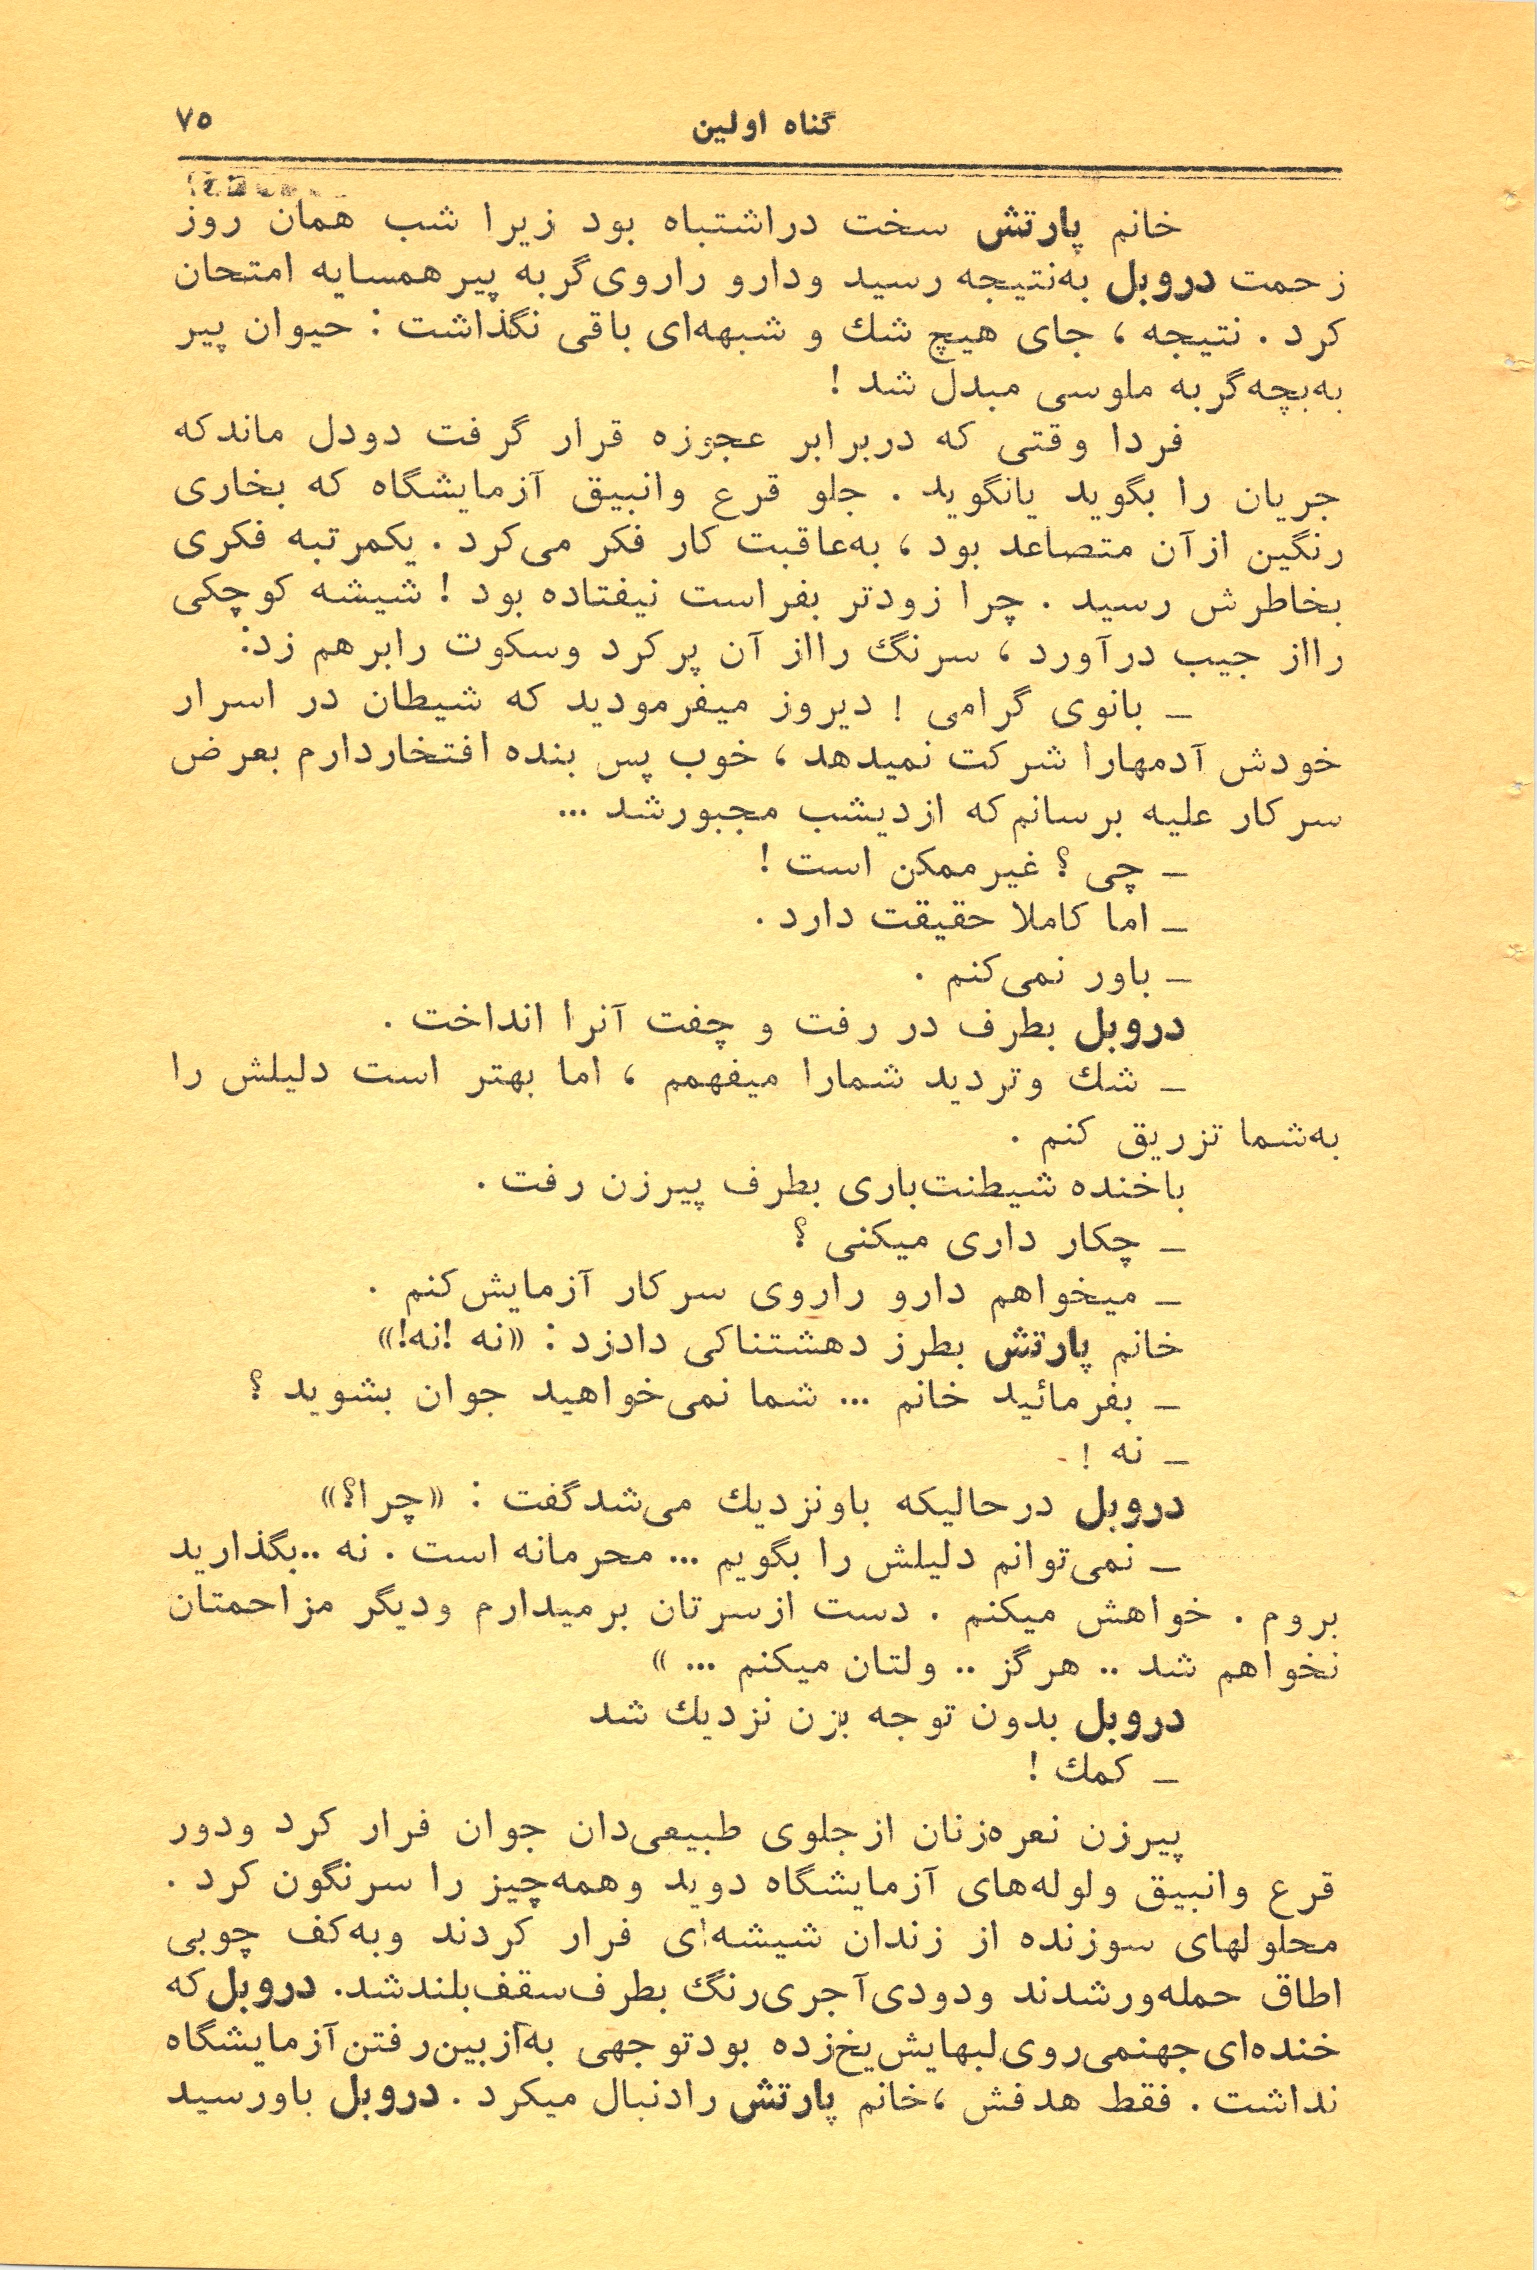 گناه اولین ۷۵
خانم پارتش سخت دراشتباه بود زیرا شب همان روز
زحمت دروبل به‌نتیجه رسید ودارو راروی‌گربه پیرهمسایه امتحان
کرد . نتیجه ، جای هیچ شك و شبهه‌ای باقی نگذاشت : حیوان پیر
به‌بچه‌گربه ملوسی مبدل شد !
فردا وقتی که دربرابر عجوزه قرار گرفت دودل ماندکه
جریان را بگوید یانگوید . جلو قرع وانبیق آزمایشگاه که بخاری
رنگین ازآن متصاعد بود ، به‌عاقبت کار فکر می‌کرد . یکمرتبه فکری
بخاطرش رسید . چرا زودتر بفراست نیفتاده بود ! شیشه کوچکی
رااز جیب درآورد ، سرنگ رااز آن پرکرد وسکوت رابرهم زد:
ـ بانوی گرامی ! دیروز میفرمودید که شیطان در اسرار
خودش آدمهارا شرکت نمیدهد ، خوب پس بنده افتخاردارم بعرض
سرکار علیه برسانم‌که ازدیشب مجبورشد ...
ـ چی ؟ غیرممکن است !
ـ اما کاملا حقیقت دارد .
ـ باور نمی‌کنم .
دروبل بطرف در رفت و چفت آنرا انداخت .
ـ شك وتردید شمارا میفهمم ، اما بهتر است دلیلش را
به‌شما تزریق کنم .
باخنده شیطنت‌باری بطرف پیرزن رفت .
ـ چکار داری میکنی ؟
ـ میخواهم دارو راروی سرکار آزمایش‌کنم .
خانم پارتش بطرز دهشتناکی دادزد : «نه !نه!»
ـ بفرمائید خانم ... شما نمی‌خواهید جوان بشوید ؟
ـ نه !
دروبل درحالیکه باونزدیك می‌شدگفت : «چرا؟»
ـ نمی‌توانم دلیلش را بگویم ... محرمانه است . نه ..بگذارید
بروم . خواهش میکنم . دست ازسرتان برمیدارم ودیگر مزاحمتان
نخواهم شد .. هرگز .. ولتان میکنم ... »
دروبل بدون توجه بزن نزدیك شد
ـ کمك !
پیرزن نعره‌زنان ازجلوی طبیعی‌دان جوان فرار کرد ودور
قرع وانبیق ولوله‌های آزمایشگاه دوید وهمه‌چیز را سرنگون کرد .
محلولهای سوزنده از زندان شیشه‌ای فرار کردند وبه‌کف چوبی
اطاق حمله‌ورشدند ودودی‌آجری‌رنگ بطرف‌سقف‌بلندشد. دروبل‌که
خنده‌ای‌جهنمی‌روی‌لبهایش‌یخ‌زده بودتوجهی به‌ازبین‌رفتن‌آزمایشگاه
نداشت . فقط هدفش ،خانم پارتش رادنبال میکرد . دروبل باورسید